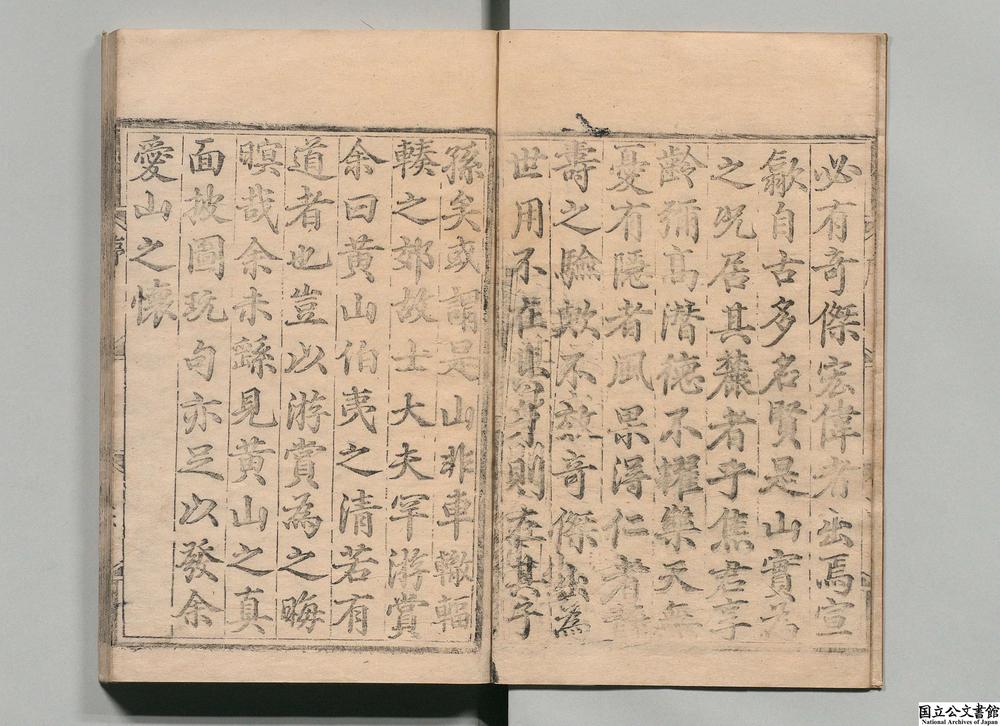 必有奇傑宏偉者出焉宣
歙自古多名賢是山實為
之呪居其麓者乎焦君享
齡彌高潛德不耀樂天無
憂有隱者風果得仁者
壽之驗歟不效奇傑出為
世用不在其身則在其子
孫矣或謂是山非車轍輻
輳之郊故士大夫罕游賞
余曰黃山伯夷之清若有
道者也豈以游賞為之晦
暝哉余未繇見黃山之真
面披圖玩句亦足以發余
愛山之懷
序
国立公文書館
National Archives of Japan